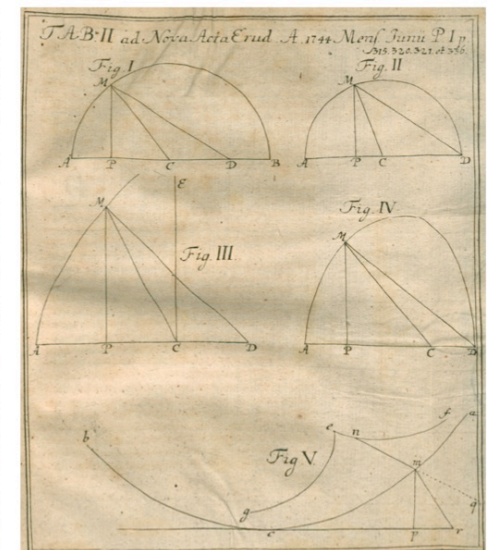 TAB. II ad Nova Acta Erud. A. 1744 Mens Junii P. I p
315. 320. 321. et 336.
Fig I
M
A P C D B
Fig II
M
A P C D
Fig. III
M
E
A P C D
Fig. IV
M
A P C D
Fig V
b
e n f a
m
g c p r q